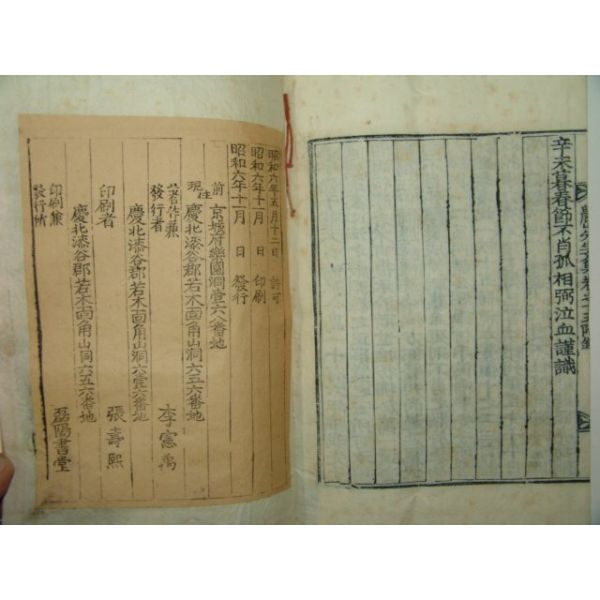 辛未暮春節不肖孤相弼泣血謹識
昭和六年五月十二日 許可
昭和六年十一月 日 印刷
昭和六年十一月 日 發行
前 京城府樂園洞壹六八番地
現住 慶北漆谷郡若木面角山洞六五六番地
著作兼發行者 李憲禹
慶北漆谷郡若木面角山洞六壹六番地
印刷者 張壽熙
慶北漆谷郡若木面角山洞六五六番地
印刷兼發行所 磊陽書堂